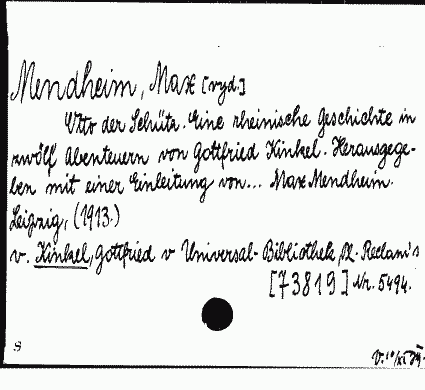 Mendheim, Max [vyd.]
Otto der Schütz. Eine rheinische Geschichte in
zwölf Abenteuern von Gottfried Kinkel. Herausgege-
ben mit einer Einleitung von... Max Mendheim.
Leipzig, (1913.)
v. Kinkel, Gottfried v Universal-Bibliothek, Ph. Reclam's
[73819] Nr. 5494.
S